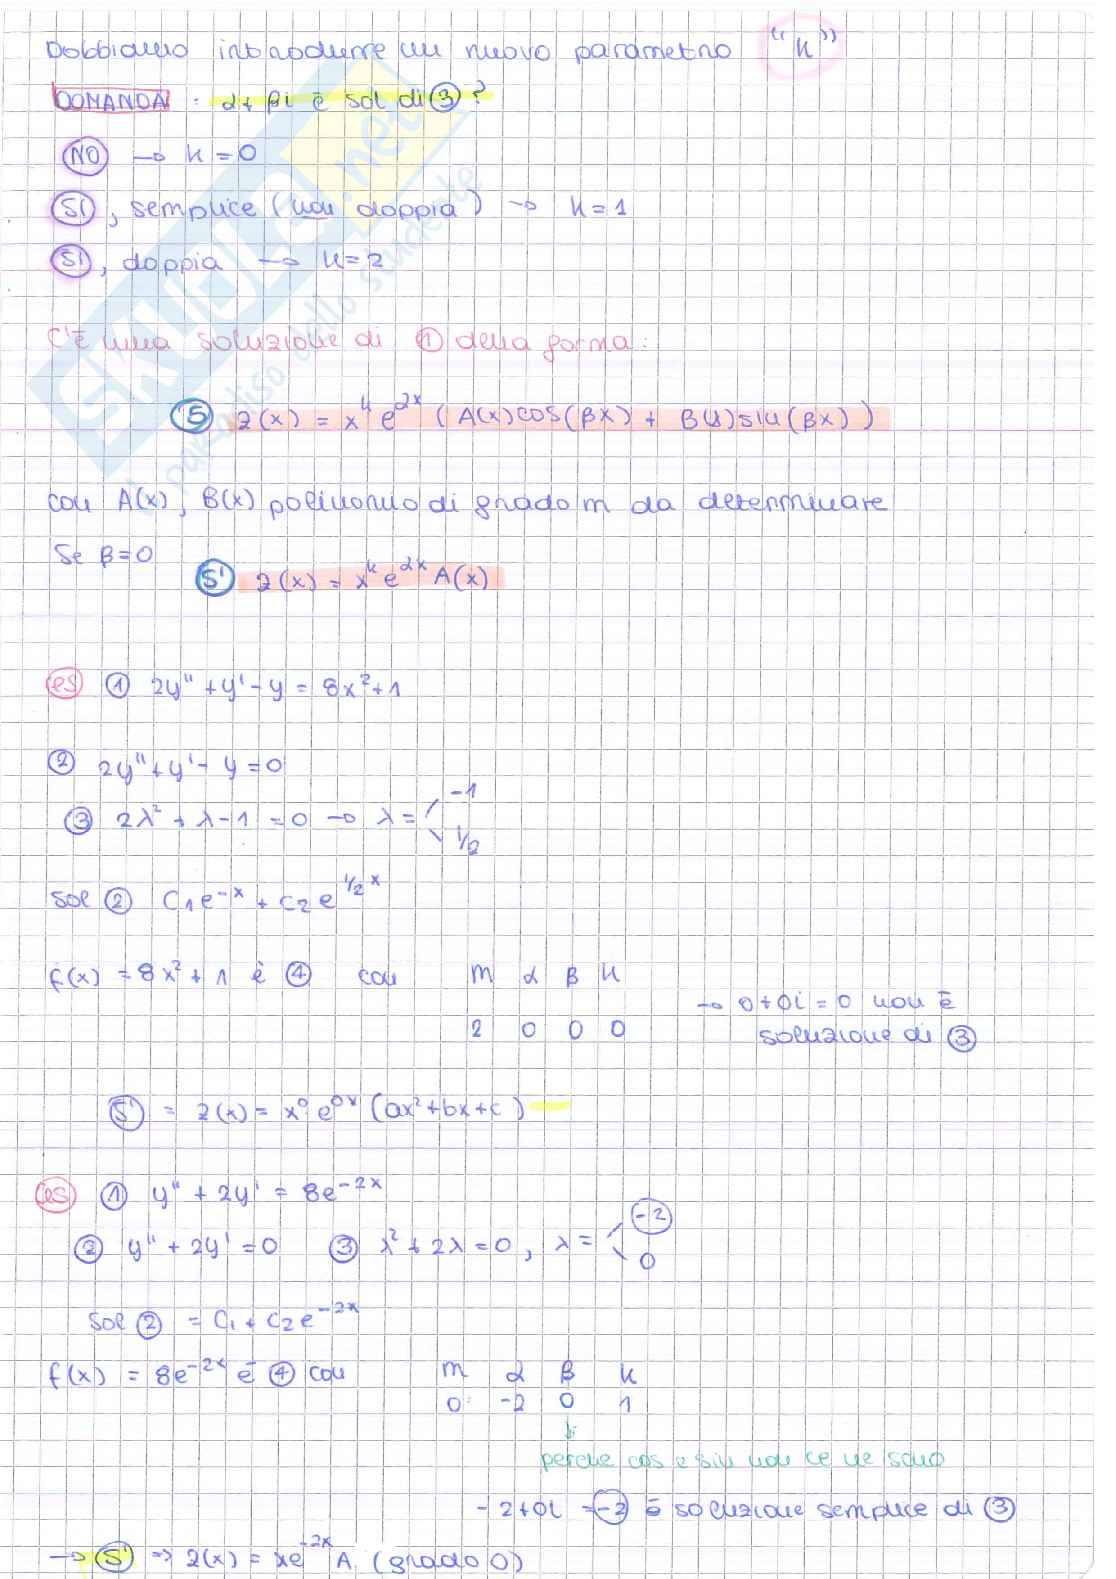 Dobbiamo introdurre un nuovo parametro "k"
DOMANDA : α+βi è sol di ③ ?
NO → k=0
SI , semplice (non doppia) → k=1
SI , doppia → k=2
C'è una soluzione di ① della forma:
⑤ z(x) = x^k e^{αx} (A(x)cos(βx) + B(x)sin(βx))
con A(x), B(x) polinomio di grado m da determinare
Se β=0
⑤' z(x) = x^k e^{αx} A(x)
es ① 2y''+y'-y = 8x²+1
② 2y''+y'-y=0
③ 2λ²+λ-1=0 → λ= -1 1/2
sol ② C₁e^{-x} + C₂e^{1/2 x}
f(x) = 8x²+1 è ④ con m α β k
2 0 0 0 → 0+0i=0 non è
soluzione di ③
⑤' = z(x) = x⁰e^{0x}(ax²+bx+c)
es ① y''+2y' = 8e^{-2x}
② y''+2y'=0 ③ λ²+2λ=0, λ= -2 0
sol ② = C₁+C₂e^{-2x}
f(x) = 8e^{-2x} è ④ con m α β k
0 -2 0 1
↓
perché cos e sin non ce ne sono
-2+0i = -2 è soluzione semplice di ③
→ ⑤' ⇒ z(x) = xe^{-2x} A (grado 0)
SKUOLA.net
il paradiso dello studente